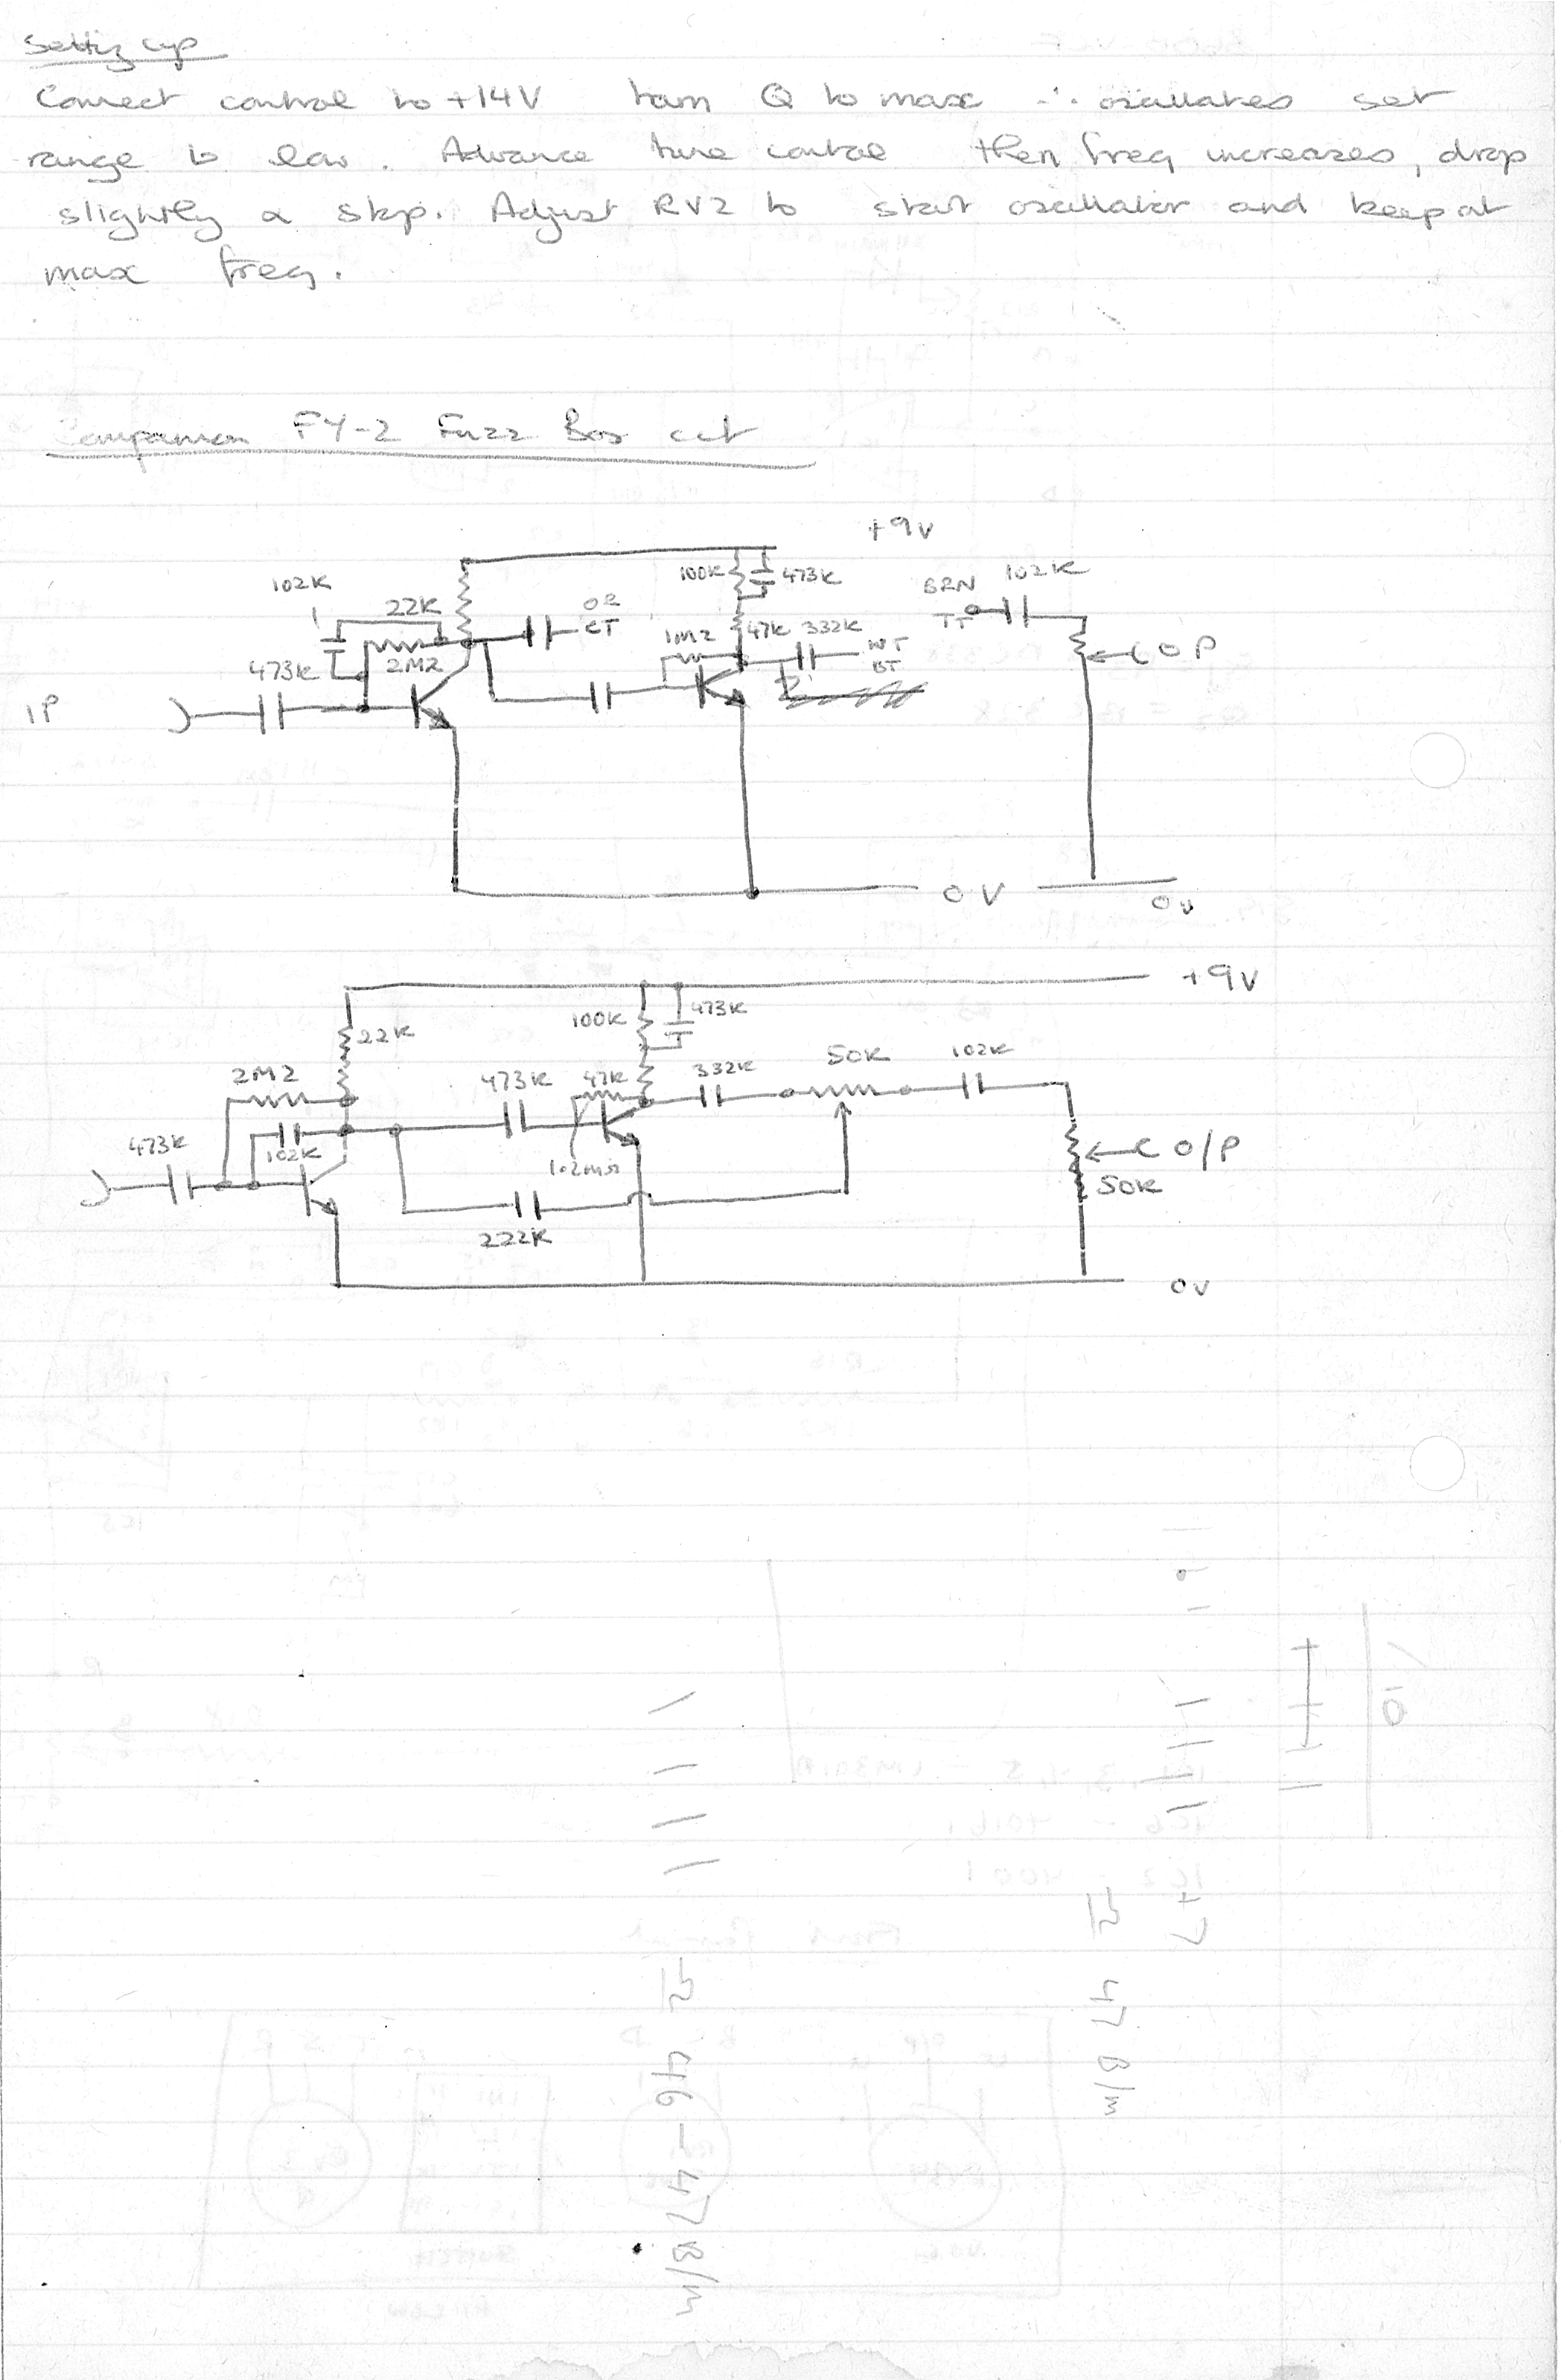 Setting up
Connect control to +14V turn Q to max ∴ oscillates set
range to low. Advance tune control then freq increases, drop
slightly & stop. Adjust RV2 to start oscillator and keep at
max freq.
Companion FY-2 Fuzz Box cct
+9V
102K
22K
OR
CT
100K
473K
BRN
TT
102K
473K
2M2
1M2
47K
332K
WT
BT
OP
IP
0V
0V
+9V
22K
100K
473K
2M2
473K
47K
332K
50K
102K
473K
102K
1.2MΩ
O/P
50K
222K
0V